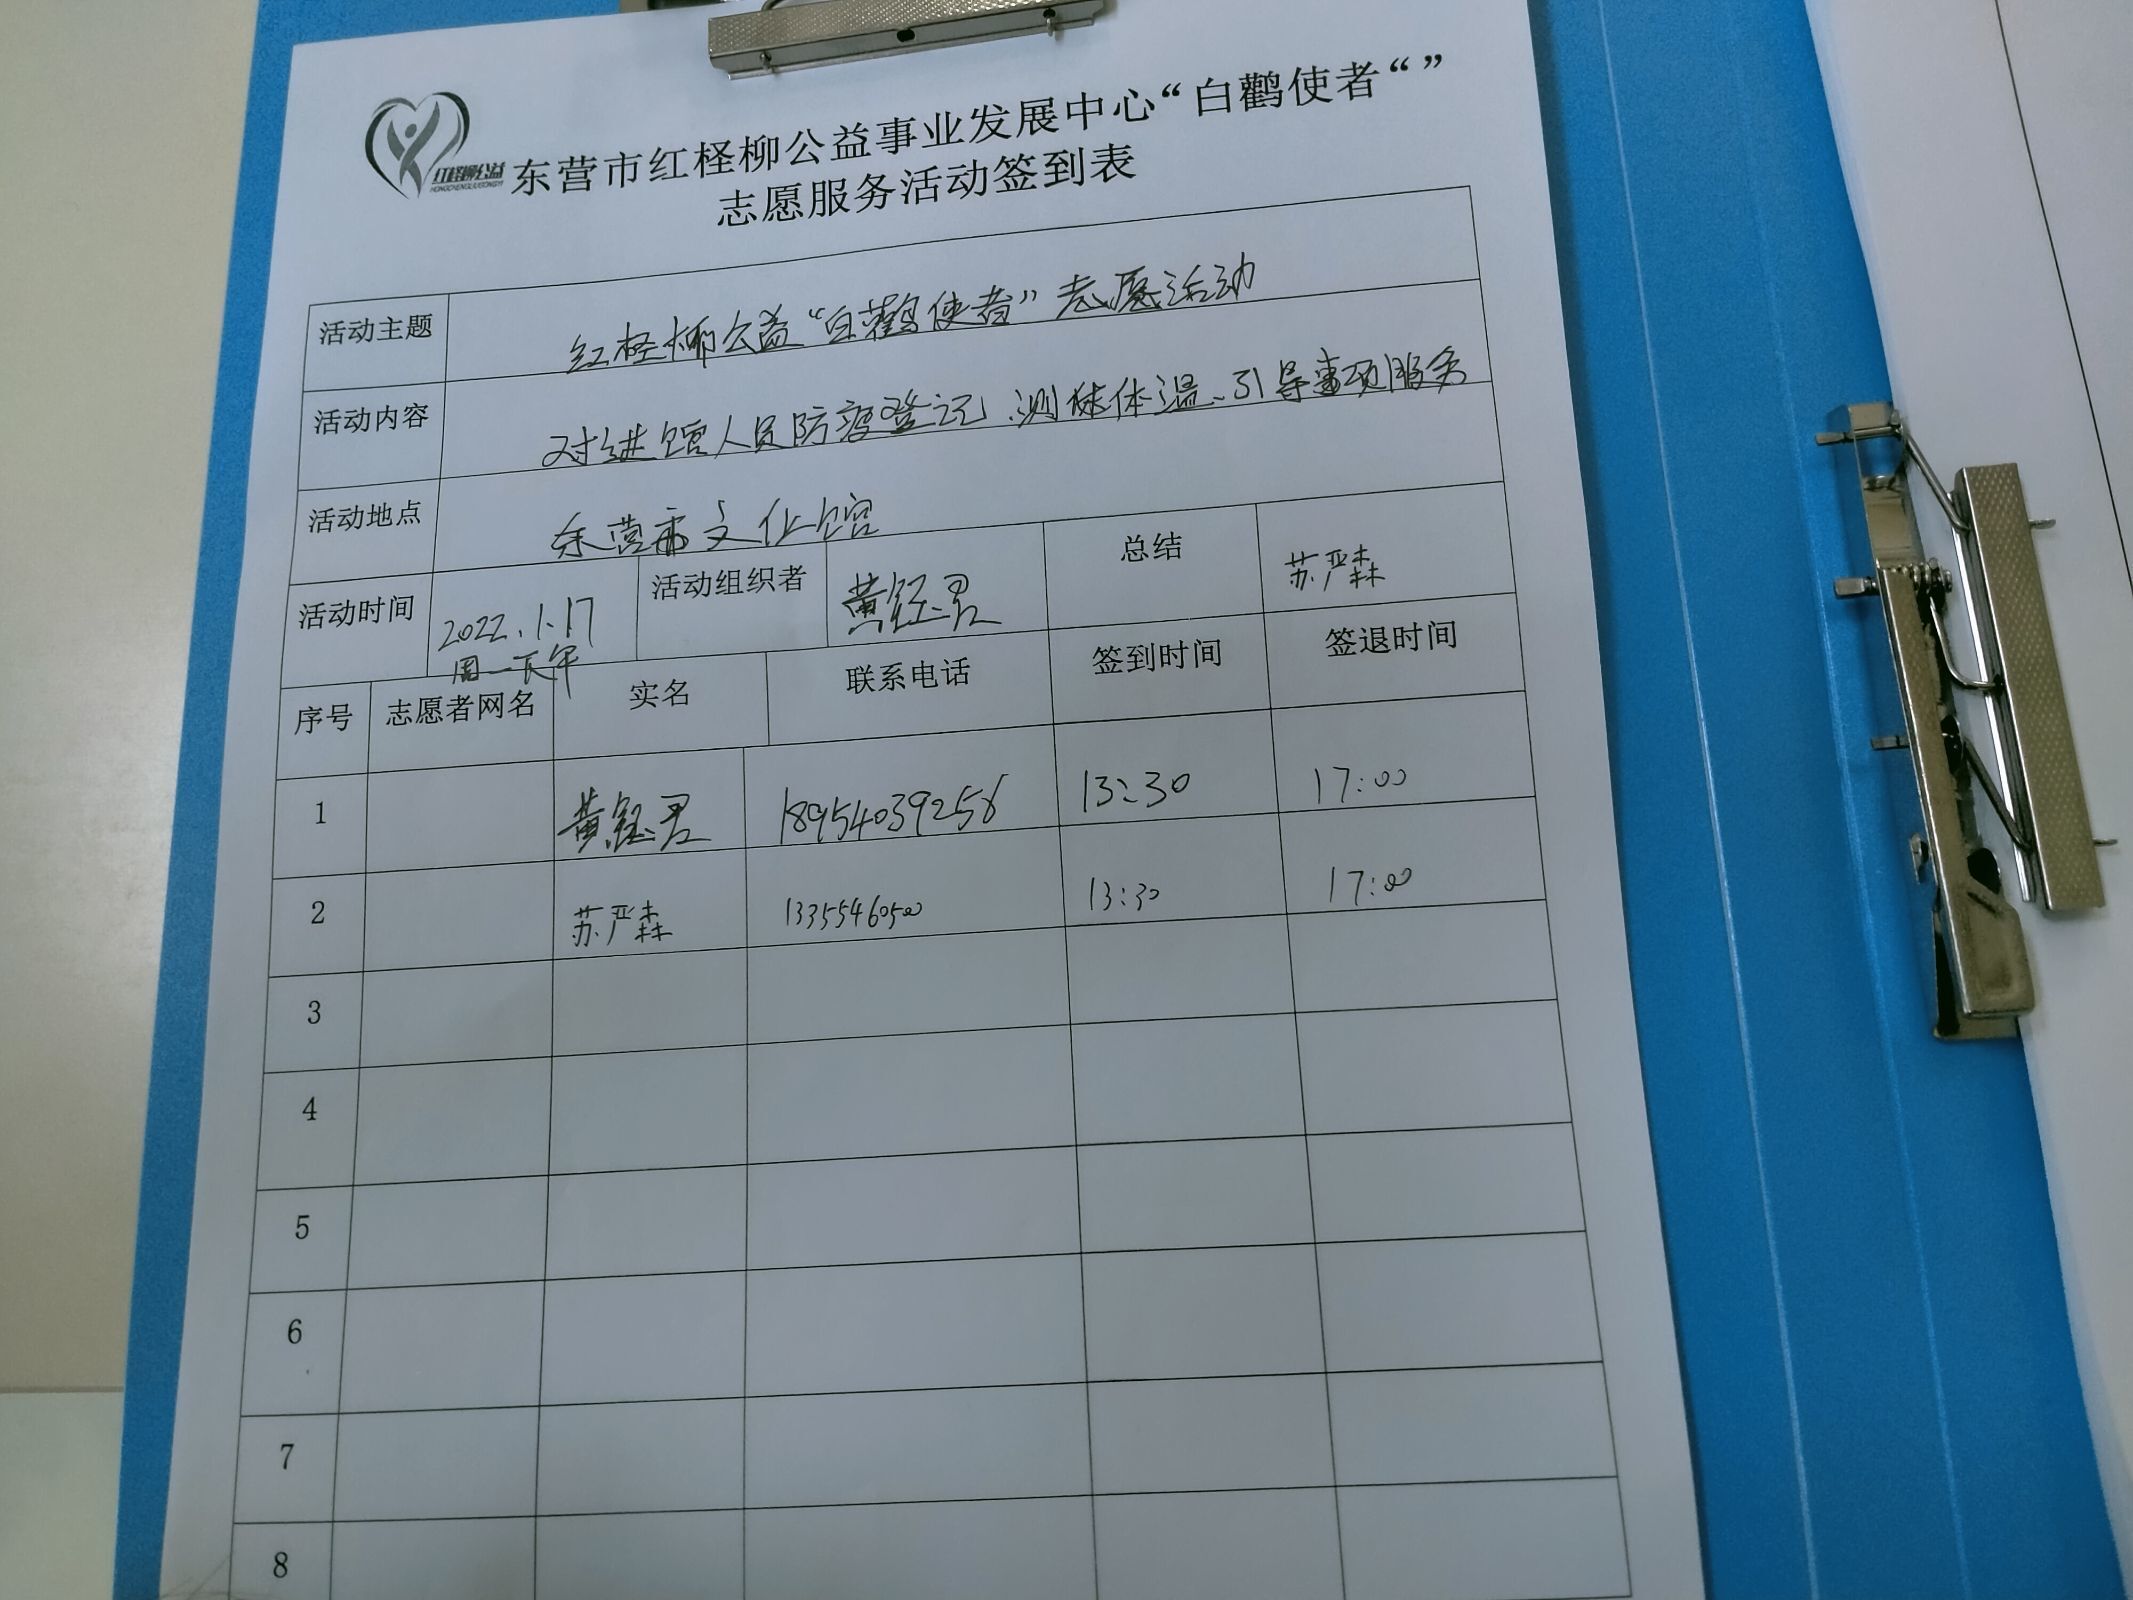 红柽柳公益
HONGCHENGLIUGONGYI
东营市红柽柳公益事业发展中心“白鹳使者“”
志愿服务活动签到表
活动主题 红柽柳公益“白鹳使者”志愿活动
活动内容 对进馆人员防疫登记、测体温、引导事项服务
活动地点 东营市文化馆
活动时间 2022.1.17 周一下午 活动组织者 黄钰君 总结 苏严森
序号 志愿者网名 实名 联系电话 签到时间 签退时间
1 黄钰君 18954039256 13:30 17:00
2 苏严森 13355460500 13:30 17:00
3
4
5
6
7
8